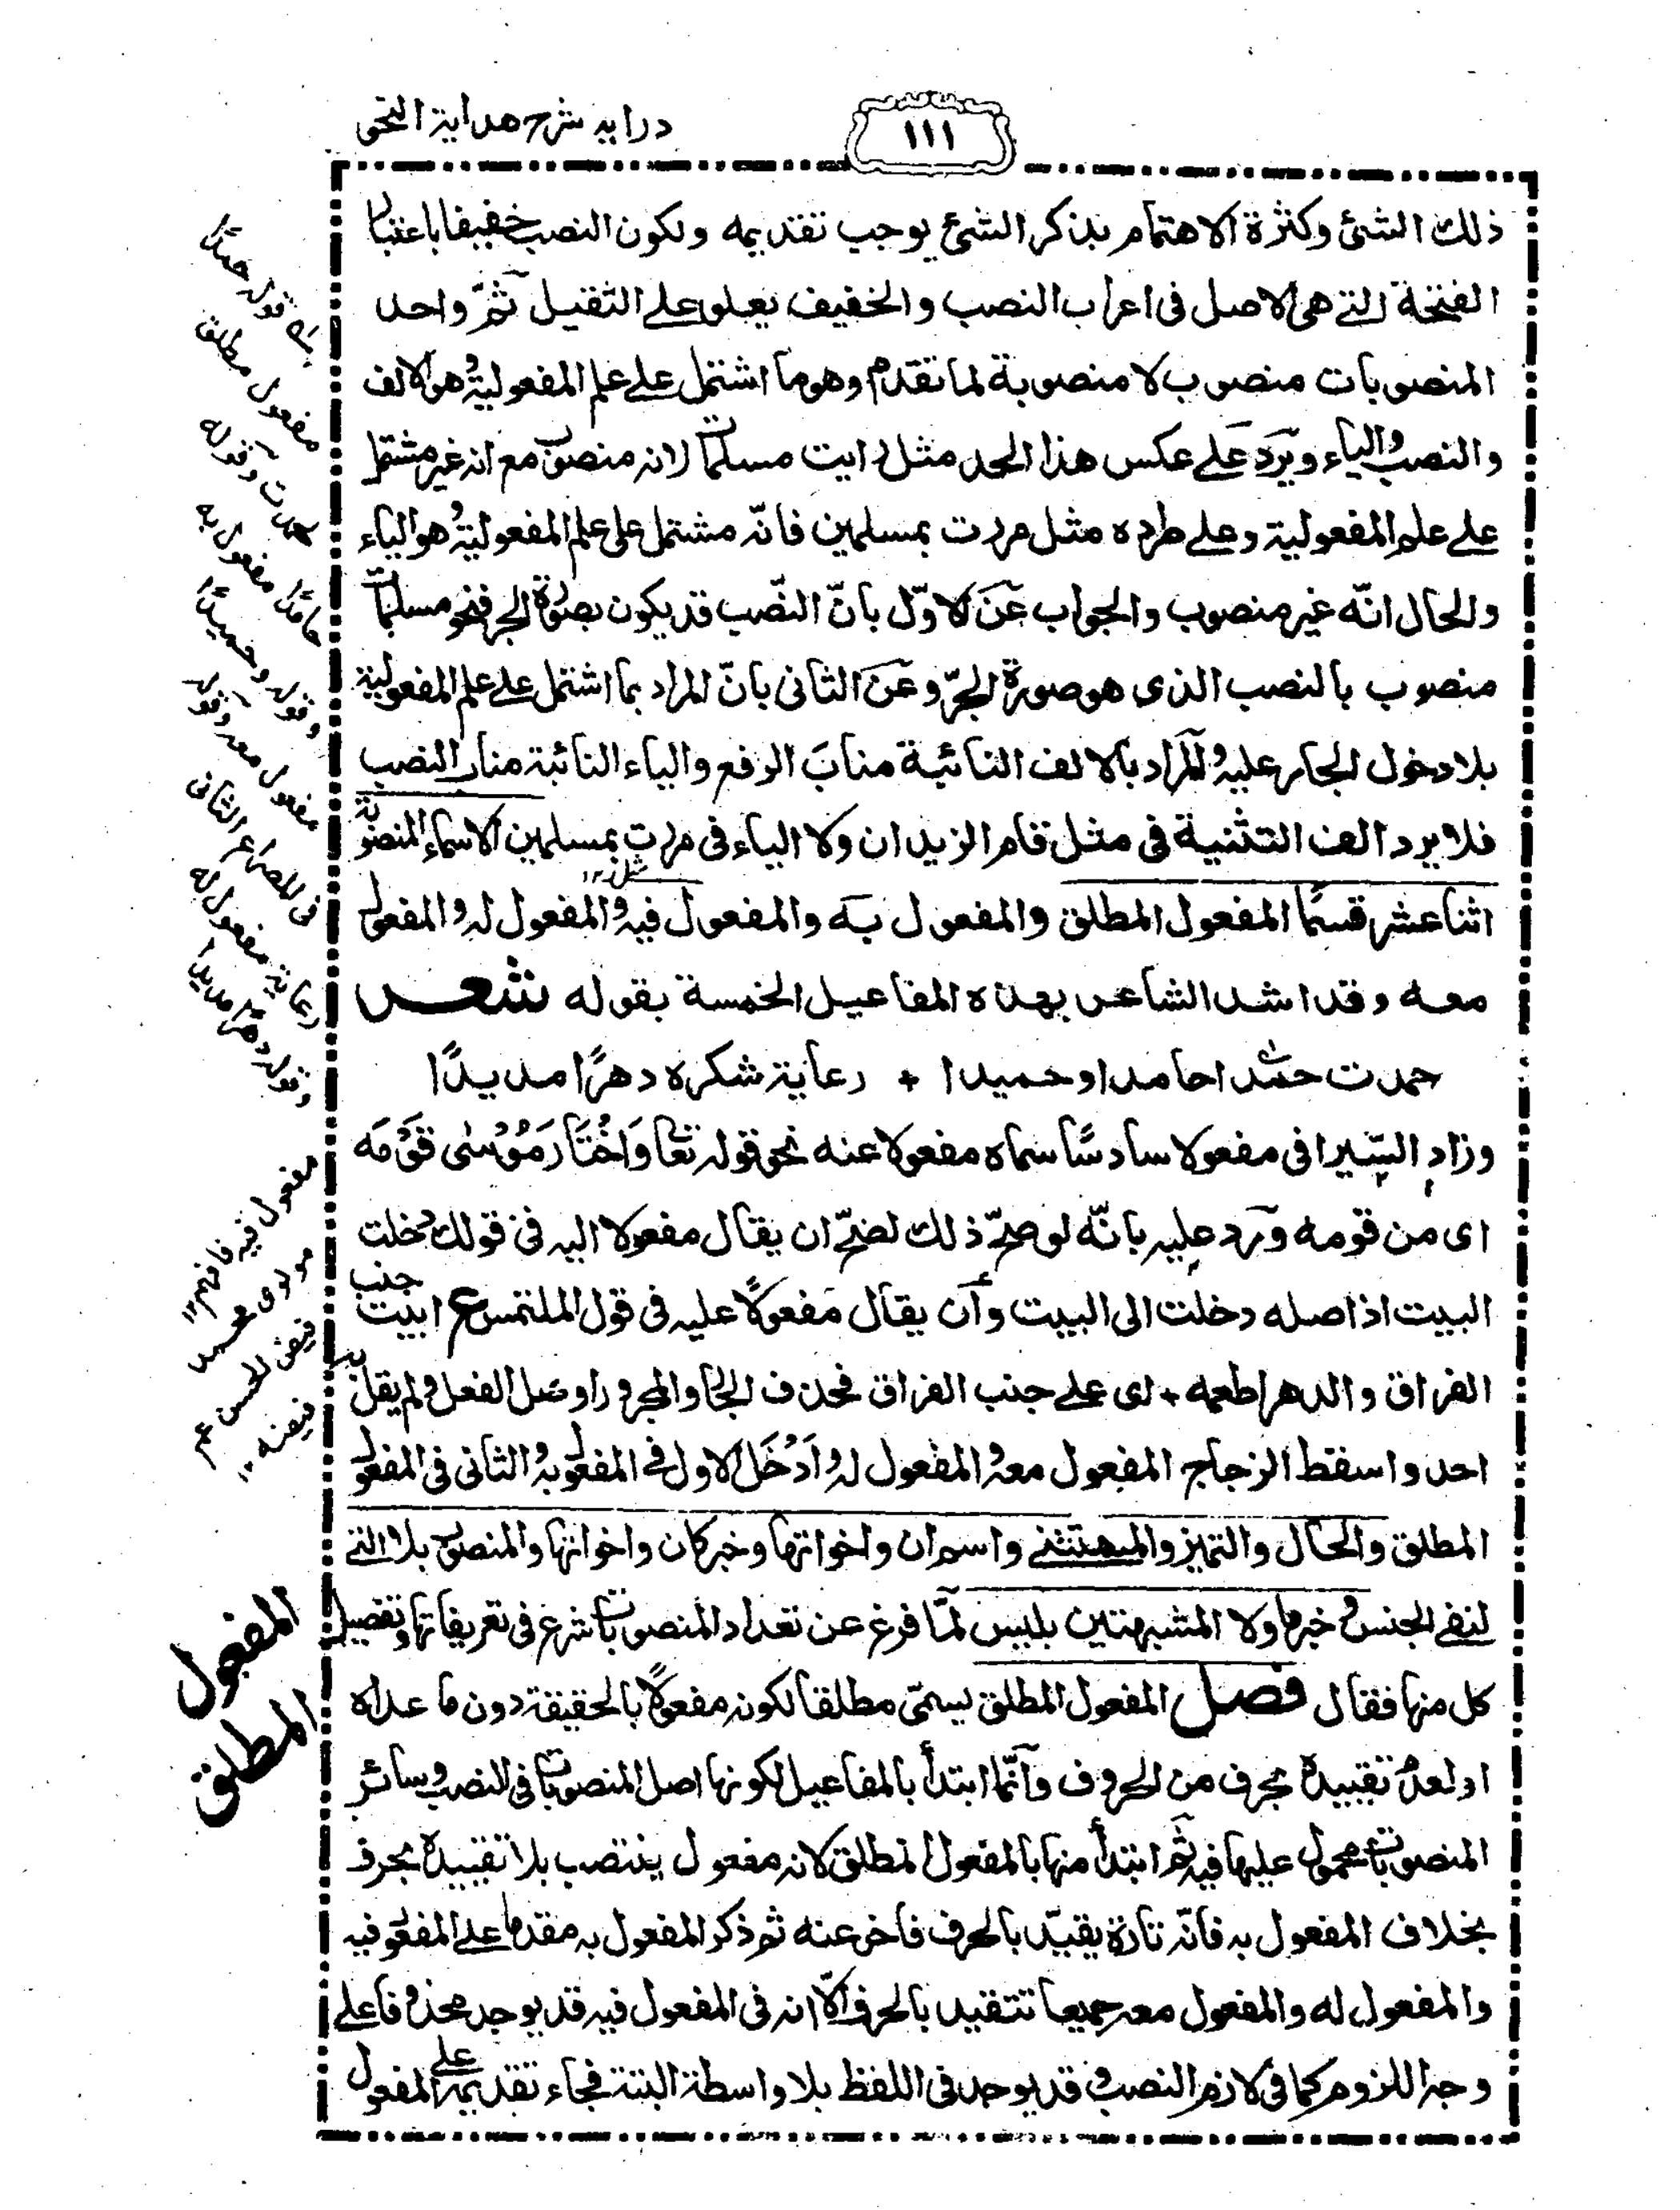 درایه شرح هدایة النحو
١١١
ذلك الشئ وكثرة الاهتمام بذكر الشئ يوجب تقديمه ولكون النصب خفيفا باعتبار
الفتحة التے هی الاصل فی اعراب النصب والخفيف يعلو علے الثقيل ثمّ واحد
المنصوبات منصوب لا منصوبة لما تقدم وهو ما اشتمل علے علم المفعولية وهو الالف
والنصب والياء ويَرِد علے عكس هذا الحد مثل رايت مسلمات لانه منصوب مع انه غير مشتمل
علے علم المفعولية وعلے طرده مثل مررت بمسلمين فانّه مشتمل علی علم المفعولية وهو الياء
والحال انّه غير منصوب والجواب عَن الاوّل بانّ النّصب قد يكون بصورة الجر فنحو مسلمات
منصوب بالنصب الذی هو صورة الجرّ وعَن الثانی بانّ المراد بما اشتمل علے علم المفعولية
بلا دخول الجار عليه والمراد بالالف النائبة منابَ الرفع والياء النائبة مناب النصب
فلا يرد الف التثنية فی مثل قام الزيدان ولا الياء فی مررت بمسلمين الاسماء المنصوبة
اثنا عشر قسمًا المفعول المطلق والمفعول به والمفعول فيه والمفعول له والمفعول
معه وقد انشد الشاعر بهذه المفاعيل الخمسة بقوله شعر
حمدت حمدًا حامدا وحميدا + رعاية شكره دهرًا مديدًا
وزاد السّيرافی مفعولا سادسًا سماه مفعولا عنه نحو قوله تعا وَاخْتَارَ مُوْسٰی قَوْمَه
ای من قومه ورَد عليه بانّه لو صحّ ذلك لصحّ ان يقال مفعولا اليه فی قولك دخلت
البيت اذ اصله دخلت الی البيت وأن يقال مفعولًا عليه فی قول الملتمس ع ابيت جنب
الفراق والدهر اطعمه + ای علے جنب الفراق فحذف الجار والمجرور اوصل الفعل ولم يقل به
احد واسقط الزجاج المفعول معه والمفعول له وادْخَل الاول فے المفعول به والثانی فی المفعول
المطلق والحال والتميز والمستثنے واسم ان واخواتها وخبر كان واخواتها والمنصوب بلا التے
لنفے الجنس وخبر ما ولا المشبهتين بليس لمّا فرغ عن تعداد المنصوبات شرع فی تعريفاتها وتفصيل
كل منها فقال فصل المفعول المطلق يسمّی مطلقا لكونه مفعولًا بالحقيقة دون ما عداه
او لعدم تقييده بحرف من الحروف وانّما ابتدأ بالمفاعيل لكونها اصل المنصوبات فی النصب وسائر
المنصوبات محمول عليها فيه ثمّ ابتدأ منها بالمفعول المطلق لانه مفعول ينتصب بلا تقييده بحرف
بخلاف المفعول به فانّه تارة يقيّد بالحرف فاخر عنه ثم ذكر المفعول به مقدما علے المفعول فيه
والمفعول له والمفعول معه جميعا تتقيد بالحرف الّا انه فی المفعول فيه قد يوجد محذوفا علی
وجه اللزوم كما فی لازم النصب وقد يوجد فی اللفظ بلا واسطة البتة فجاء تقديمه علے المفعول
قوله حمدًا
مفعول مطلق
حمدت وقوله
حامدًا مفعول به
وقوله وحميدًا
مفعول معه وقوله
فی المصراع الثانی
رعاية مفعول له
وقوله دهرًا مديدا
مفعول فيه فافهم ١٢
مولوی محمد
فيض الحسن عم
فيضه ١٢
المفعول
المطلق